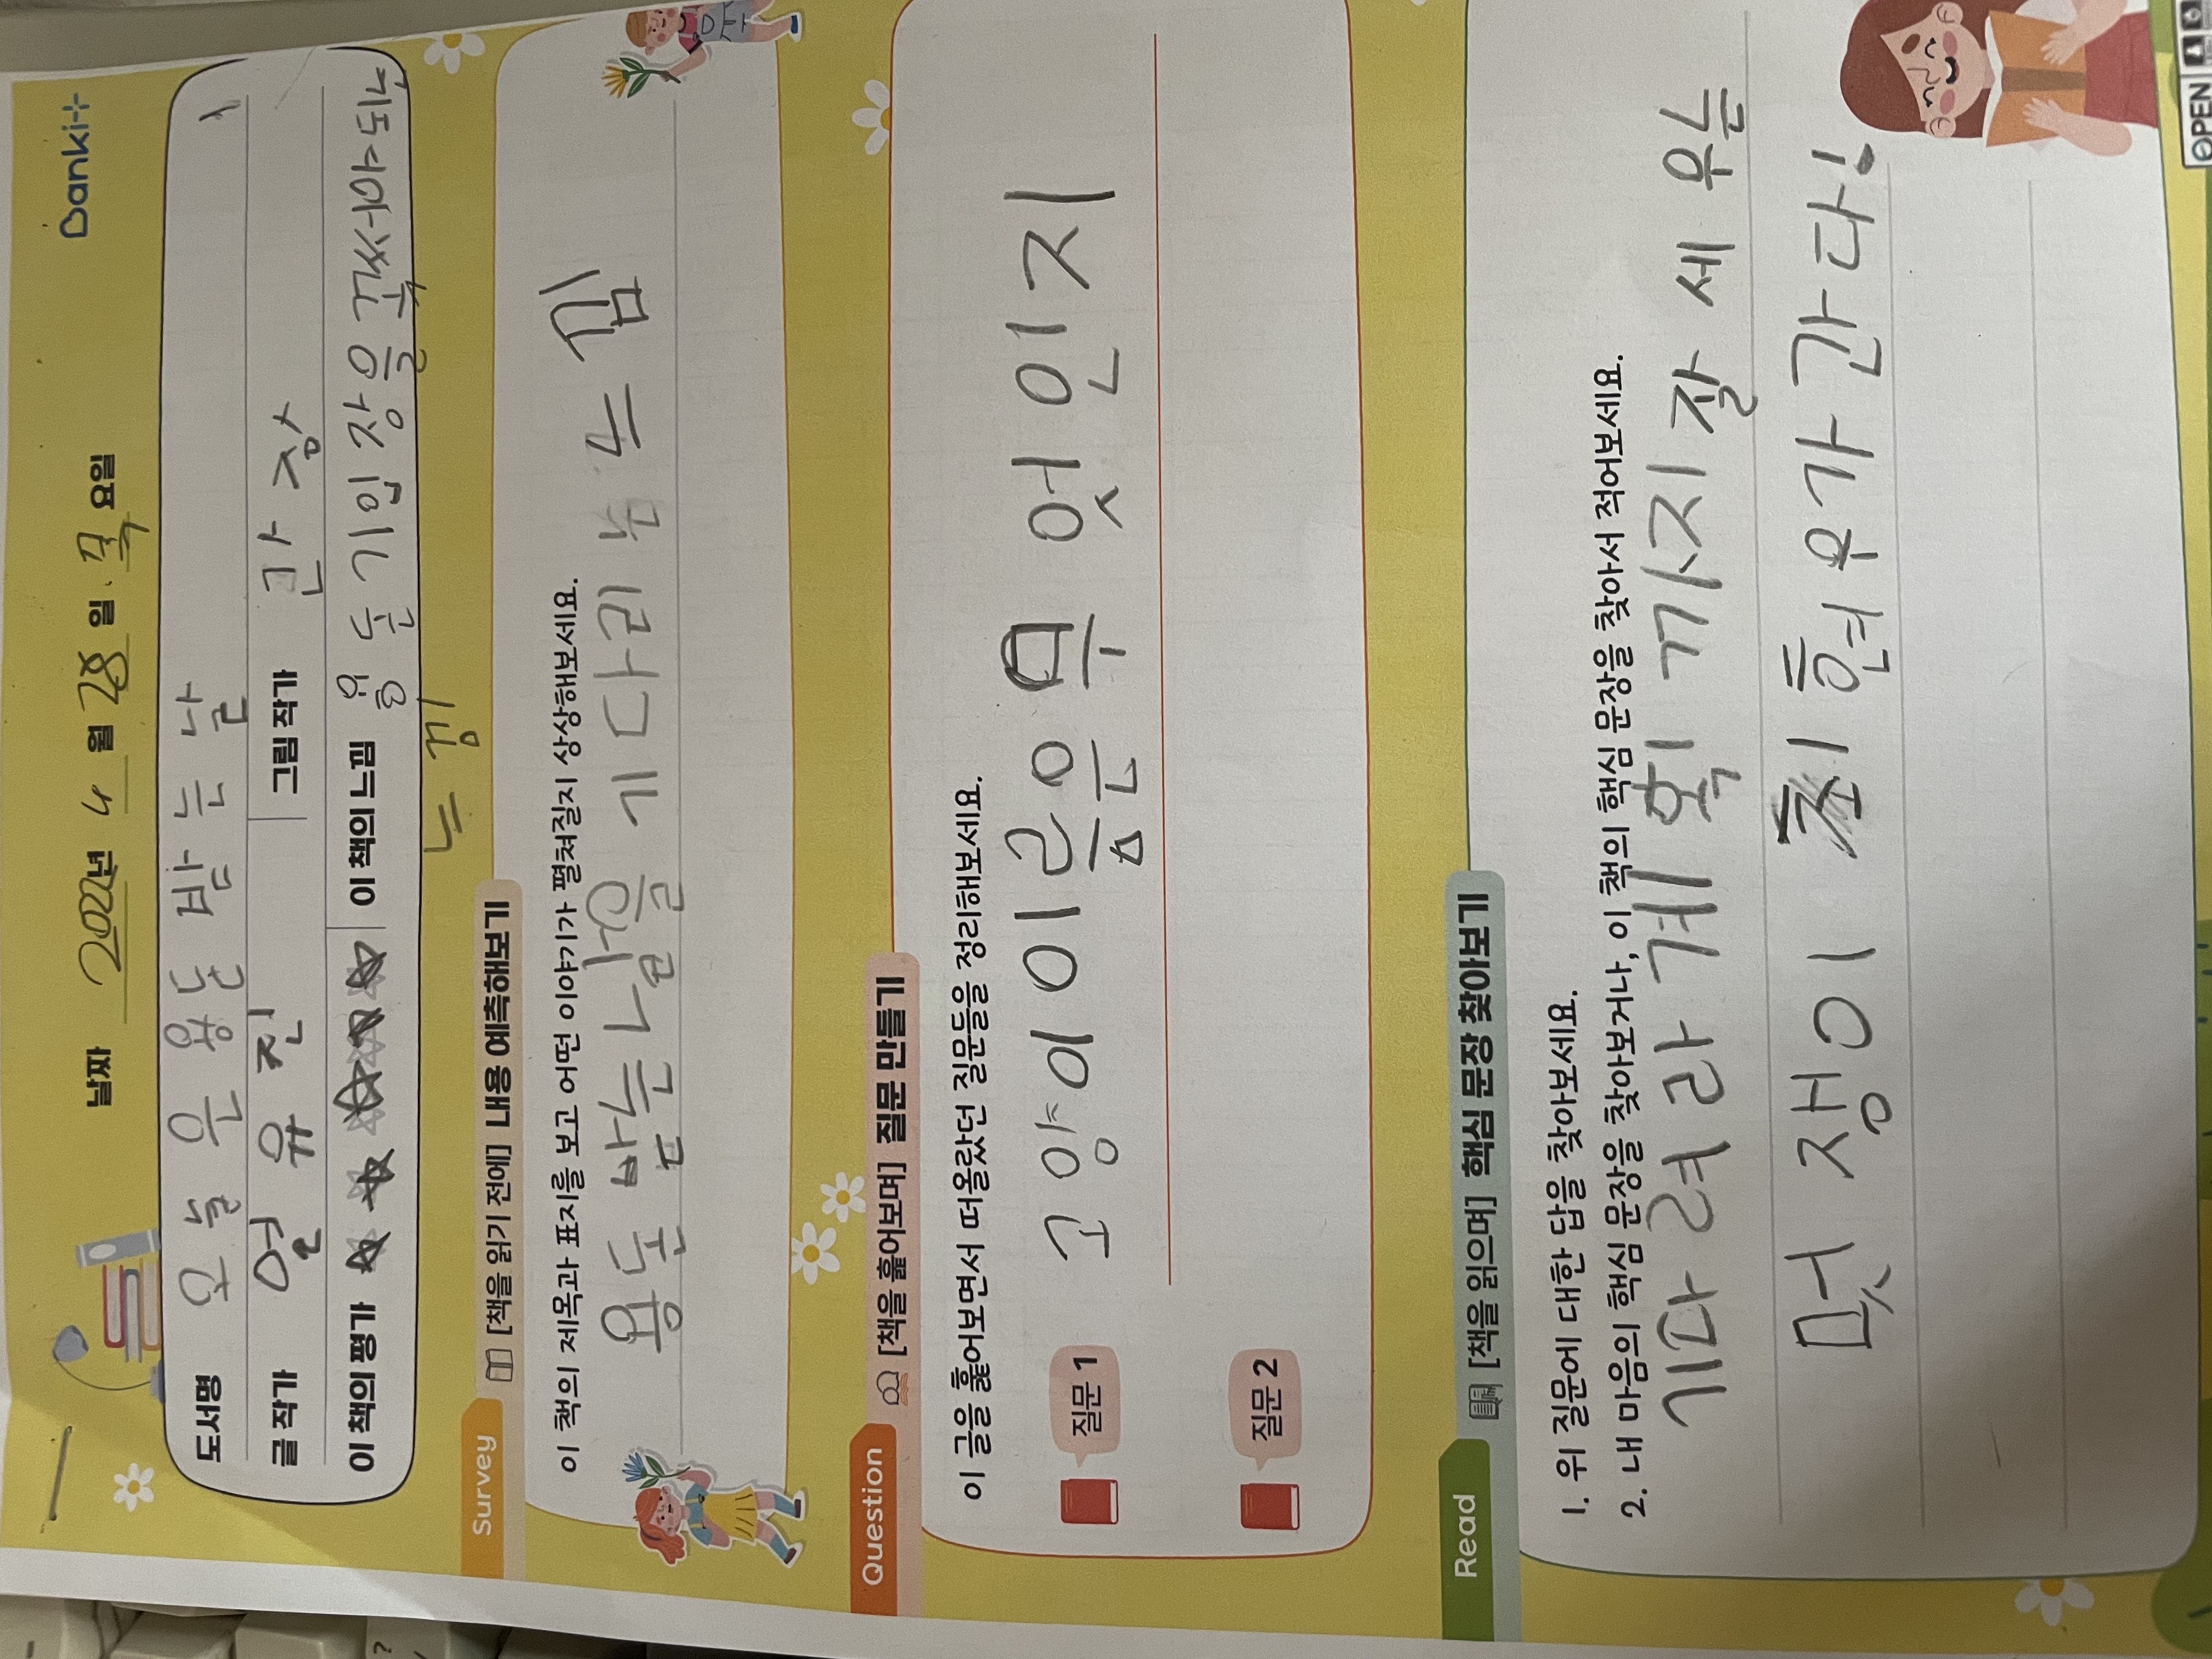 Danki
날짜 2022년 4월 28일. 목요일
도서명 오늘은 용돈 받는 날
글 작가 연유진 그림 작가 간장
이 책의 평가 이 책의 느낌 용돈기입장을 꼭써야되는
느낌
Survey [책을 읽기 전에] 내용 예측해보기
이 책의 제목과 표지를 보고 어떤 이야기가 펼쳐질지 상상해보세요.
용돈 받는 날을 기다리는 느낌
Question [책을 훑어보며] 질문 만들기
이 글을 훑어보면서 떠올랐던 질문들을 정리해보세요.
질문 1 고양이 이름은 무엇인지
질문 2
Read [책을 읽으며] 핵심 문장 찾아보기
1. 위 질문에 대한 답을 찾아보세요.
2. 내 마음의 핵심 문장을 찾아보거나, 이 책의 핵심 문장을 찾아서 적어보세요.
기다려라 계획까지 잘 세우는
멋쟁이 최현우가 간다!
OPEN